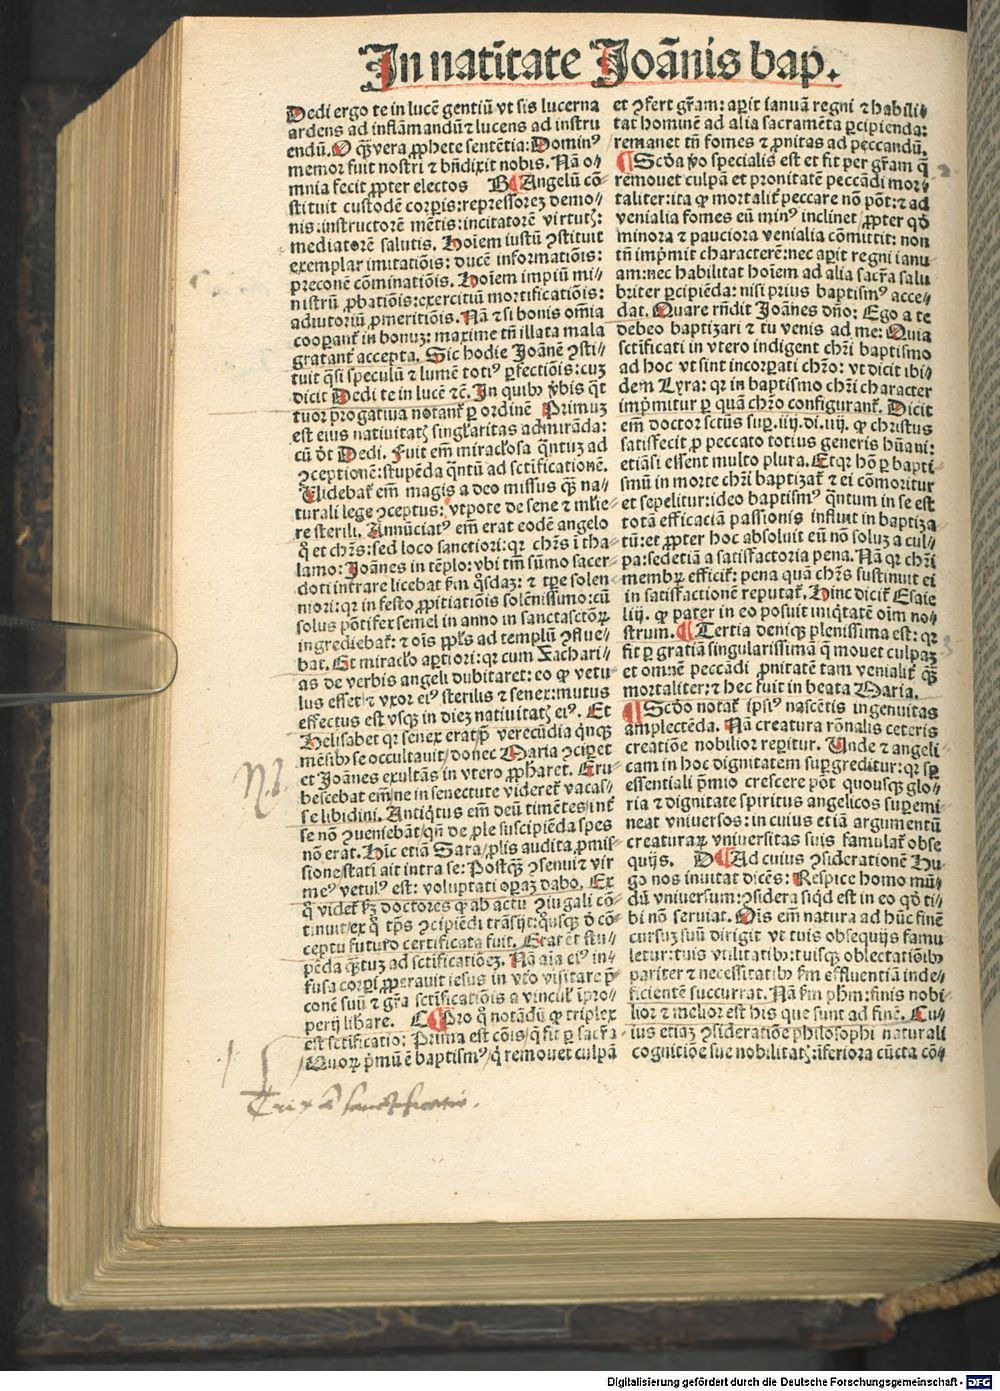 In natītate Joānis bap.
Dedi ergo te in lucē gentiū vt sis lucerna
ardens ad inflāmandū ⁊ lucens ad instru
endū. O q̄̃ vera ꝓphete sentētia: Dominꝰ
memor fuit nostri ⁊ bn̄dixit nobis. Nā o⸗
mnia fecit ꝓpter electos B ¶ Angelū cō⸗
stituit custodē corꝑis: repressorē demo⸗
nis: instructorē mētis: incitatorē virtutꝭ:
mediatorē salutis. Hoīem iustū ꝯstituit
exemplar imitatiōis: ducē informatiōis:
preconē cōminatiōis. Hoīem impiū mi⸗
nistrū ꝓbatiōis: exercitiū mortificatiōis:
adiutoriū ꝓmeritiōis. Nā ⁊ si bonis om̄ia
cooperant᷑ in bonuꝫ: maxime tn̄ illata mala
gratant᷑ accepta. Sic hodie Joānē ꝯsti⸗
tuit q̄si speculū ⁊ lumē totiꝰ ꝑfectiōis: cuꝫ
dicit Dedi te in lucē ⁊c̄. In quibꝰ ṽbis q̄t
tuor p̄rogatiua notant᷑ ꝑ ordinē Primuꝫ
est eius natiuitatꝭ singl̓aritas admirāda:
cū dīt Dedi. Fuit em̄ miracl̓osa q̄ntuꝫ ad
ꝯceptionē: stupēda q̄ntū ad sctīficationē.
Uidebat᷑ em̄ magis a deo missus q̄̃ na⸗
turali lege ꝯceptus: vtpote de sene ⁊ mĺie⸗
re sterili. Annūciatꝰ em̄ erat eodē angelo
q̊ et chrs̄: sed loco sanctiori: qꝛ chrs̄ ī tha⸗
lamo: Joānes in tēplo: vbi tm̄ sūmo sacer⸗
doti intrare licebat ẜm q̊sdaꝫ: ⁊ tꝑe solen⸗
niori: qꝛ in festo ꝓpitiatiōis solēnissimo: cū
solus pōtifex semel in anno in sancta sctōꝝ
ingrediebat᷑: ⁊ oīs ppl̓s ad templū ꝯflue⸗
bat. Et miracl̓o aꝑtiori: qꝛ cum Zachari⸗
as de verbis angeli dubitaret: eo ꝙ vetu⸗
lus esset/ ⁊ vxor eiꝰ sterilis ⁊ senex: mutus
effectus est vsqꝫ in dieꝫ natiuitatꝭ eiꝰ. Et
Helisabet qꝛ senex erat/ p̄ verecūdia q̄nqꝫ
mēsibꝰ se occultauit/ donec Maria ꝯciꝑet
et Joānes exultās in vtero ꝓpharet. Eru⸗
bescebat em̄/ ne in senectute videret᷑ vacas⸗
se libidini. Antiq̇tus em̄ deū timētes/ int̓
se nō ꝯueniebāt/ qn̄ de ꝓle suscipiēda spes
nō erat. Hic etiā Sara/ ꝓlis audita ꝓmis⸗
sione/ stati᷑ ait intra se: Postq̄̃ ꝯsenui ⁊ vir
meꝰ vetulꝰ est: voluptati operaꝫ dabo. Ex
q̊ videt᷑ ẜꝫ doctores ꝙ ab actu ꝯiugali cō⸗
tinuit/ ex q̊ tꝑs ꝯcipiēdi trāsijt: q̊usqꝫ ð cō⸗
ceptu futuro certificata fuit. Erat et̓ stu⸗
pēda q̄̃tuꝫ ad sctīficatiōeꝫ. Nā aīa eiꝰ in⸗
fusa corꝑi ꝓperauit iesus in vt̓o visitare p̄⸗
conē suū ⁊ gr̄a sctīficatiōis a vincul̓ ip̄ro⸗
perij lib̓are. C ¶ Pro q̊ notādū ꝙ triplex
est sctīficatio: Prima est cōis/ q̄ fit ꝑ sacr̄a⸗
Quoꝝ p̄mū ē baptismꝰ/ q̇ remouet culpā
et ꝯfert gr̄am: aꝑit ianuā regni ⁊ habili⸗
tat hominē ad alia sacramēta ꝑcipienda:
remanet tn̄ fomes ⁊ ꝓnitas ad peccandū.
¶ Sc̄da v̓o specialis est et fit per gr̄am q̄
remouet culpā et pronitatē peccādi mor⸗
taliter: ita ꝙ mortalit̓ peccare nō pōt: ⁊ ad
venialia fomes eū minꝰ inclinet/ ꝓpter qd̓
minora ⁊ pauciora venialia cōmittit: non
tn̄ imp̄mit characterē: nec aꝑit regni ianu⸗
am: nec habilitat hoīem ad alia sacr̄a salu
briter ꝑcipiēda: nisi prius baptismꝰ acce⸗
dat. Quare rn̄dit Joānes dn̄o: Ego a te
debeo baptizari ⁊ tu venis ad me: Quia
sctīficati in vtero indigent chri̅ baptismo
ad hoc vt sint incorꝑati chro̅: vt dicit ibi⸗
dem Lyra: qꝛ in baptismo chri̅ character
imp̄mitur ꝑ quā chro̅ configurant᷑. Dicit
em̄ doctor sctūs suꝑ. iiij. di. iiij. ꝙ christus
satisfecit ꝓ peccato totius generis hūani:
etiāsi essent multo plura. Et qꝛ hō ꝑ bapti⸗
smū in morte chri̅ baptizat᷑ ⁊ ei cōmoritur
et sepelitur: ideo baptismꝰ q̄ntum in se est
totā efficaciā passionis influit in baptiza⸗
tū: et ꝓpter hoc absoluit eū nō soluꝫ a cul⸗
pa: sed etiā a satisfactoria pena. Nā qꝛ chri̅
membꝝ efficit᷑: pena quā chrs̄ sustinuit ei
in satisfactionē reputat᷑. Hinc dicit᷑ Esaie
liij. ꝙ pater in eo posuit iniq̇tatē oīm no⸗
strum. ¶ Tertia deniqꝫ plenissima est: qꝛ
fit ꝑ gratiā singularissimā q̄ mouet culpaꝫ
et omnē peccādi ꝓnitatē tam venialit̓ q̄̃
mortaliter: ⁊ hec fuit in beata Maria.
¶ Scd̓o notat᷑ ipsiꝰ nascētis ingenuitas
amplectēda. Nā creatura rōnalis ceteris
creatiōe nobilior reꝑitur. Unde ⁊ angeli
cam in hoc dignitatem suꝑgreditur: qꝛ sꝑ
essentiali p̄mio crescere pōt quousqꝫ glo⸗
ria ⁊ dignitate spiritus angelicos suꝑemi
neat vniuersos: in cuius etiā argumentū
creaturaꝝ vniuersitas suis famulat᷑ obse
quijs. D ¶ Ad cuius ꝯsiderationē Hu⸗
go nos inuitat dicēs: Respice homo mū⸗
dū vniuersum: ꝯsidera siq̇d est in eo qd̓ ti⸗
bi nō seruiat. Oīs em̄ natura ad hūc finē
cursuꝫ suū dirigit vt tuis obsequijs famu
letur: tuis vtilitatibꝰ: tuisqꝫ oblectatiōibꝰ
pariter ⁊ necessitatibꝰ ẜm effluentiā inde⸗
ficientē succurrat. Nā ẜm phm̄: finis nobi⸗
lior ⁊ melior est his que sunt ad finē. Cu⸗
ius etiaꝫ ꝯsideratiōe philosophi naturali
cognitiōe sue nobilitatꝭ: īferiora cūcta cō⸗
N.b.
Triplex sanctificatio.
Digitalisierung gefördert durch die Deutsche Forschungsgemeinschaft - DFG